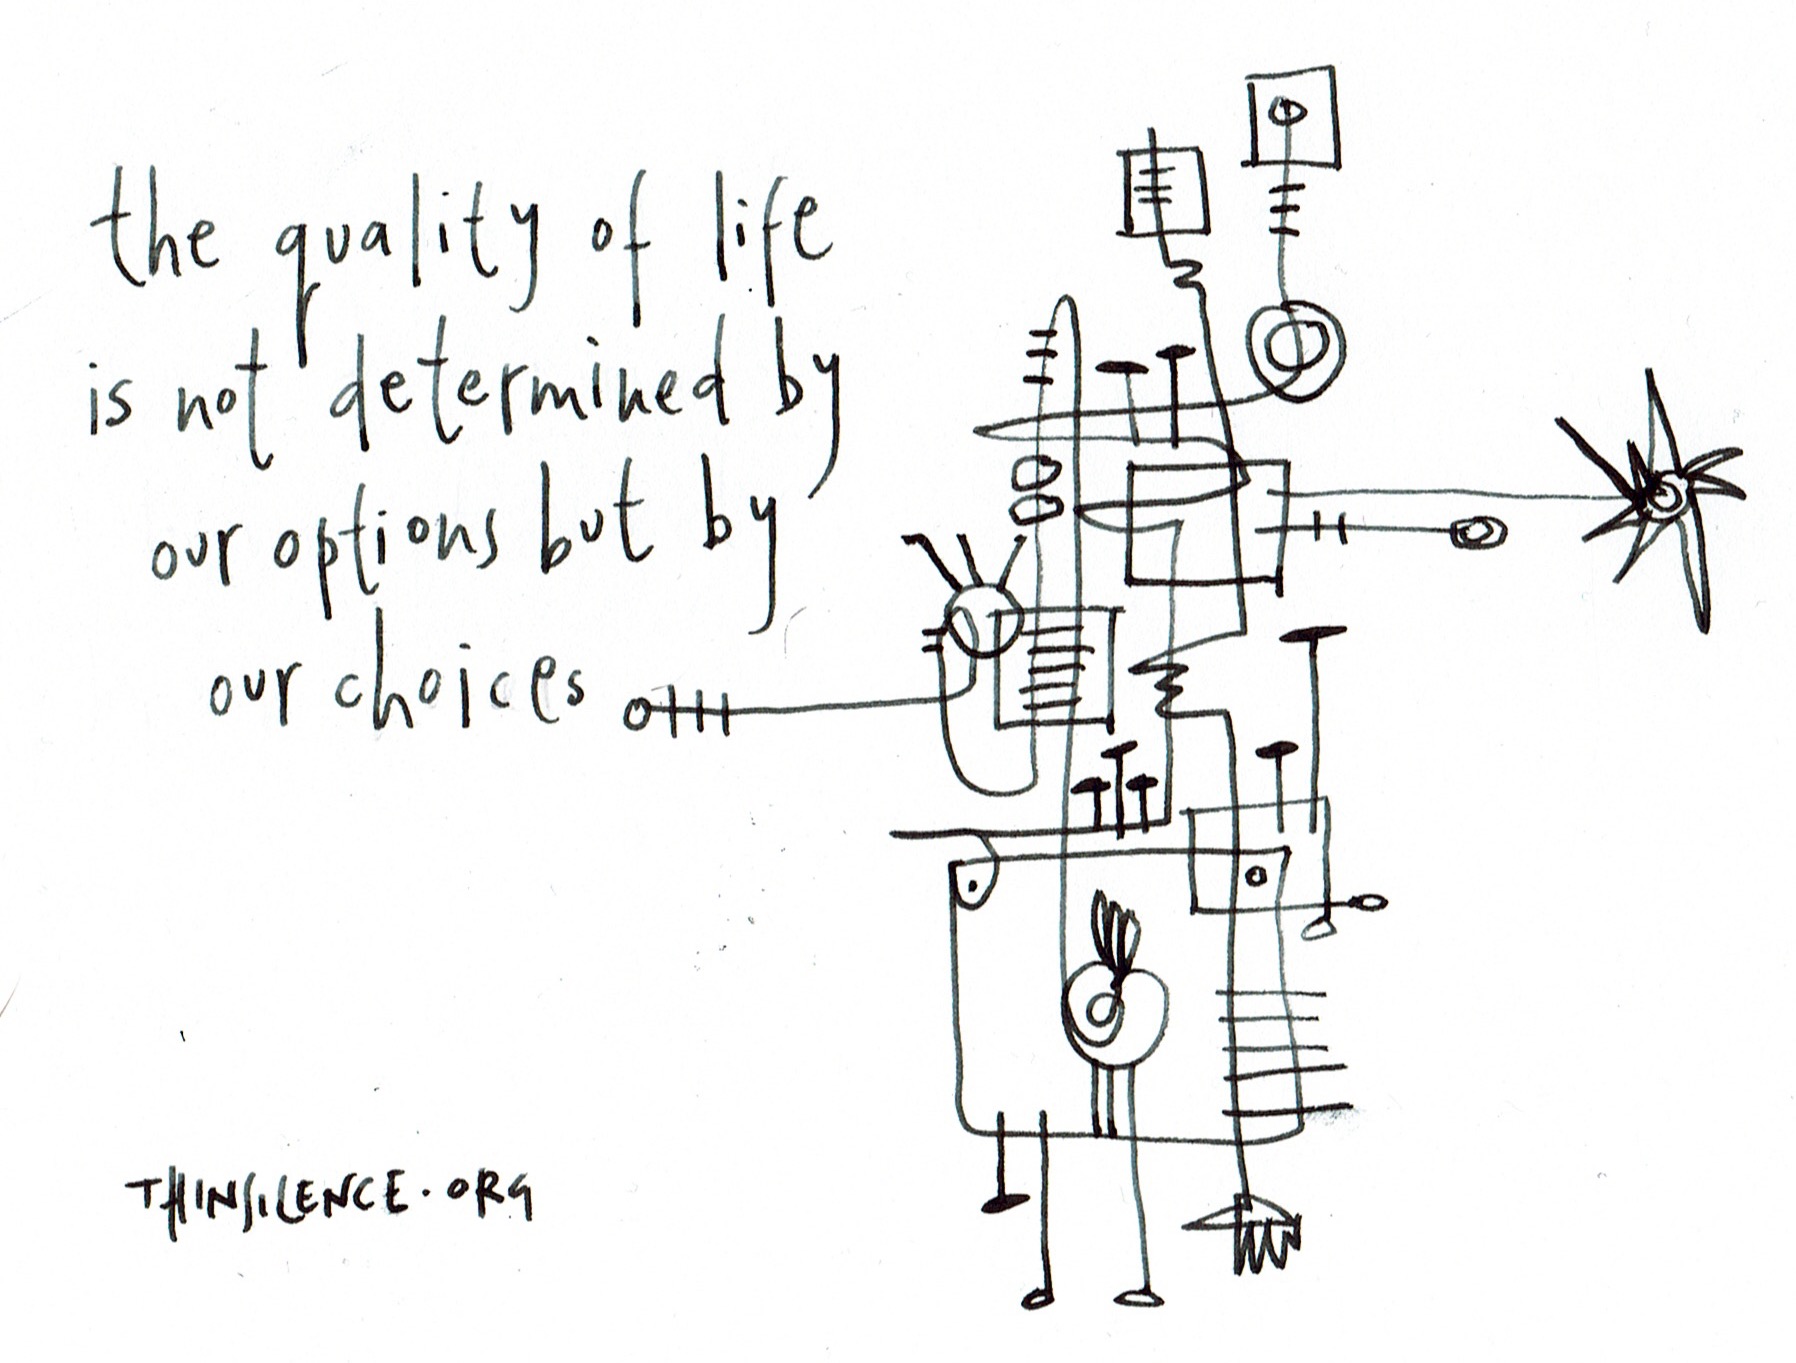 the quality of life
is not determined by
our options but by
our choices
THINSILENCE.ORG